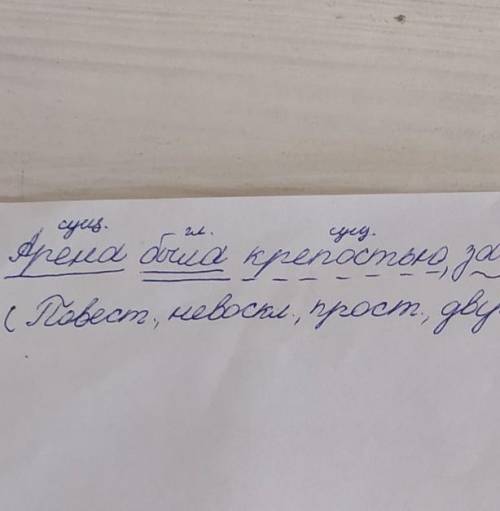 сущ. гл. сущ.
Арена была крепостью, за
(Повест., невоскл., прост., дву